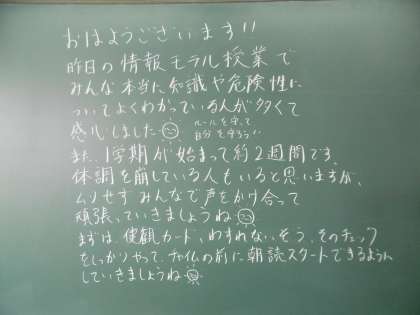 おはようございます!!
昨日の情報モラル授業で
みんな本当に知識や危険性に
ついてよくわかっている人が多くて
感心しました
ルールを守って
自分を守ろう!!
また、1学期が始まって約2週間です。
体調を崩している人もいると思いますが、
ムリせずみんなで声をかけ合って
頑張っていきましょうね
まずは、健観カード、わすれないよう、そのチェック
をしっかりやって、チャイムの前に朝読スタートできるように
していきましょうね